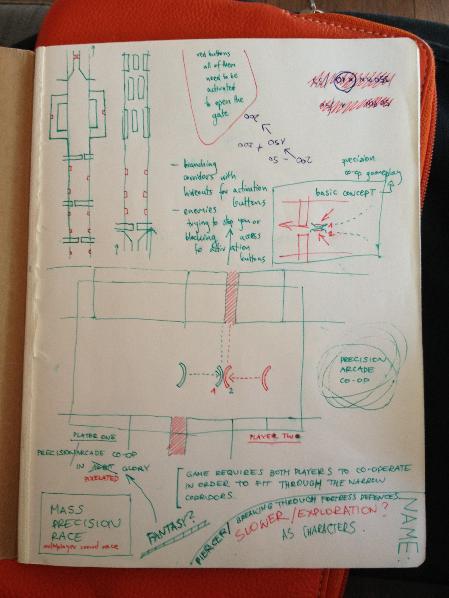 red buttons
all of them
need to be
activated
to open the
gate
200
150 + 200
200 - 50
- branching
corridors with
hideouts for activation
buttons
- enemies
trying to stop you or
blocking access
to activation
buttons
precision
co-op gameplay
BASIC CONCEPT
1
2
1 2
PRECISION
ARCADE
CO-OP
PLAYER ONE
PLAYER TWO
PRECISION/ARCADE CO-OP
IN GLORY
PIXELATED
GAME REQUIRES BOTH PLAYERS TO CO-OPERATE
IN ORDER TO FIT THROUGH THE NARROW
CORRIDORS.
MASS
PRECISION
RACE
multiplayer round race
FANTASY?
PIERCER/ BREAKING THROUGH FORTRESS DEFENCES
SLOWER/EXPLORATION?
AS CHARACTERS.
NAME: